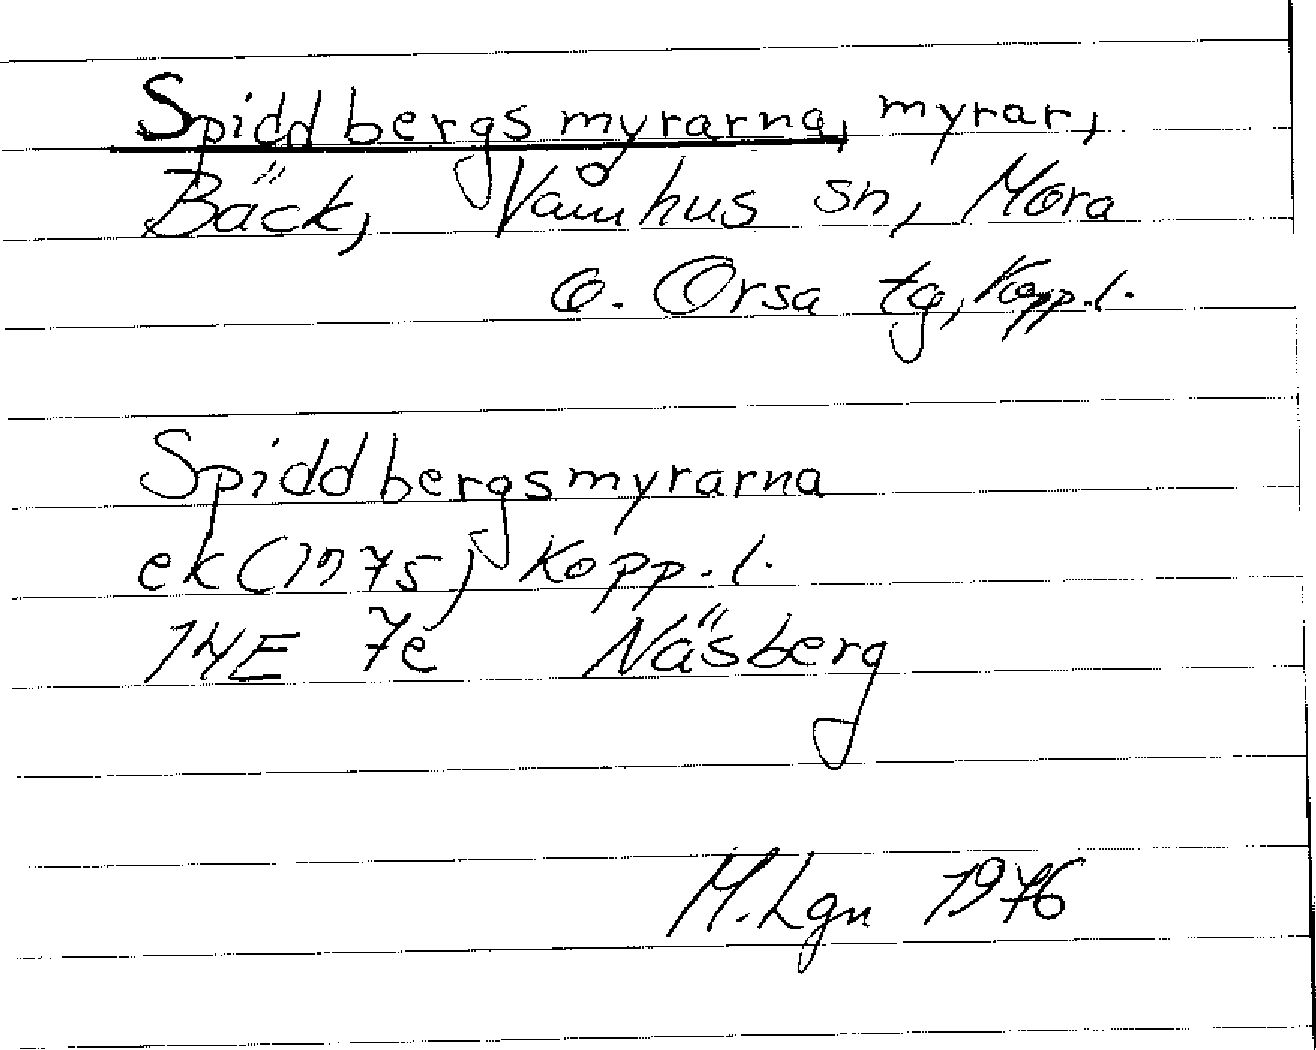 Spiddbergsmyrarna, myrar,
Bäck, Våmhus sn, Mora
o. Orsa tg, Kopp. l.
Spiddbergsmyrarna
ek (1975) Kopp. l.
14E 7e Näsberg
M. Lgn 1976